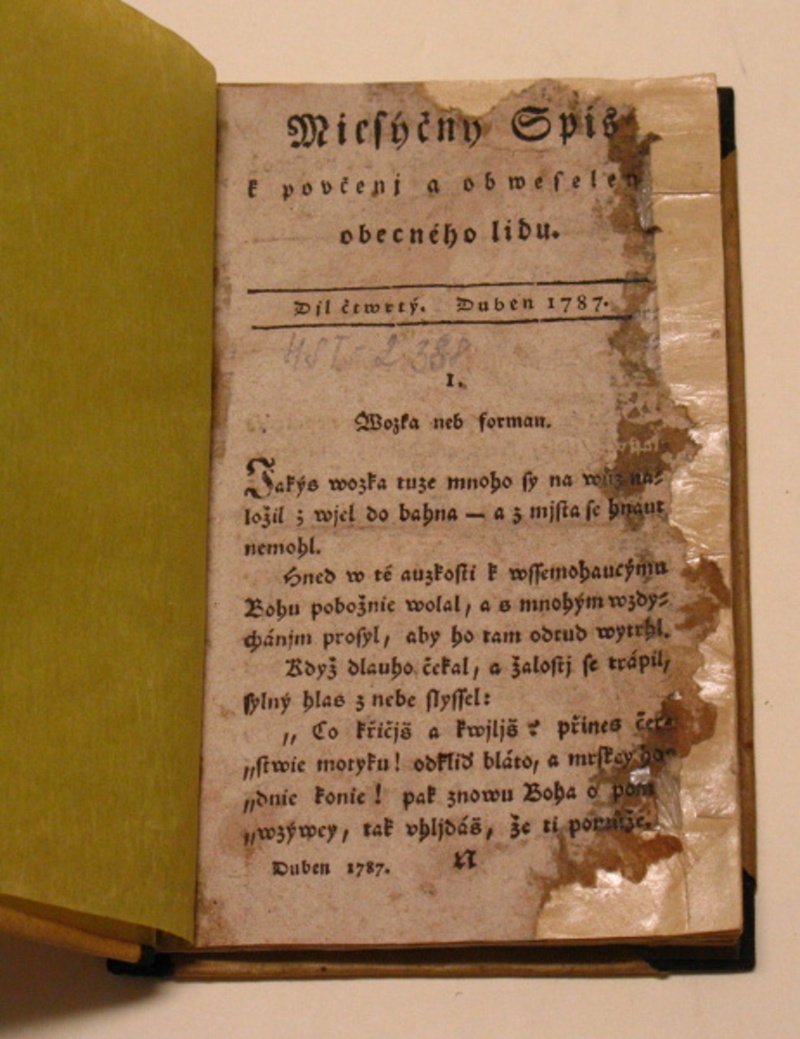 Miesýčny Spis
k povčenj a obweselen
obecného lidu.
Djl čtwrtý. Duben 1787.
HST-2 388
I.
Wozka neb forman.
Jakýs wozka tuze mnoho sy na wůz na=
ložil ; wjel do bahna — a z mjsta se hnaut
nemohl.
Hned w té auzkosti k wssemohaucýmu
Bohu pobožnie wolal, a s mnohým wzdy=
chánjm prosyl, aby ho tam odtud wytrhl.
Když dlauho čekal, a žalostj se trápil,
sylný hlas z nebe slyssel:
„ Co křičjš a kwjljš ? přines čer=
„stwie motyku! odkliď bláto, a mrskey ho=
„dnie konie! pak znowu Boha o pom
„wzýwey, tak vhljdáš, že ti pomůže.
Duben 1787. N